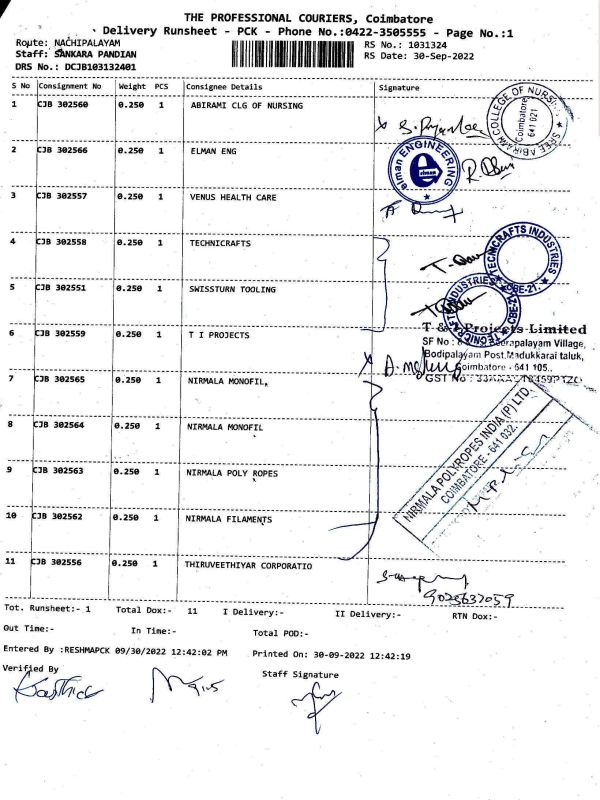 THE PROFESSIONAL COURIERS, Coimbatore
Delivery Runsheet - PCK - Phone No.:0422-3505555 - Page No.:1
Route: NACHIPALAYAM
RS No.: 1031324
Staff: SANKARA PANDIAN
RS Date: 30-Sep-2022
DRS No.: DCJB103132401
S No Consignment No Weight PCS Consignee Details Signature
1 CJB 302560 0.250 1 ABIRAMI CLG OF NURSING
COLLEGE OF NURSING
Coimbatore
641 021
2 CJB 302566 0.250 1 ELMAN ENG
elman ENGINEERING
elman
3 CJB 302557 0.250 1 VENUS HEALTH CARE
4 CJB 302558 0.250 1 TECHNICRAFTS
TECHNICRAFTS INDUSTRIES
CBE-21.
5 CJB 302551 0.250 1 SWISSTURN TOOLING
INDUSTRIES
CBE-21.
6 CJB 302559 0.250 1 T I PROJECTS
Projects Limited
SF No :
Village,
Bodipalayam Post, Madukkarai taluk,
Coimbatore - 641 105.,
GST No
7 CJB 302565 0.250 1 NIRMALA MONOFIL,
8 CJB 302564 0.250 1 NIRMALA MONOFIL
NIRMALA POLYROPES INDIA (P) LTD.
COIMBATORE - 641 032.
9 CJB 302563 0.250 1 NIRMALA POLY ROPES
10 CJB 302562 0.250 1 NIRMALA FILAMENTS
11 CJB 302556 0.250 1 THIRUVEETHIYAR CORPORATIO
Tot. Runsheet:- 1 Total Dox:- 11 I Delivery:- II Delivery:- RTN Dox:-
Out Time:- In Time:- Total POD:-
Entered By :RESHMAPCK 09/30/2022 12:42:02 PM Printed On: 30-09-2022 12:42:19
Verified By
Staff Signature